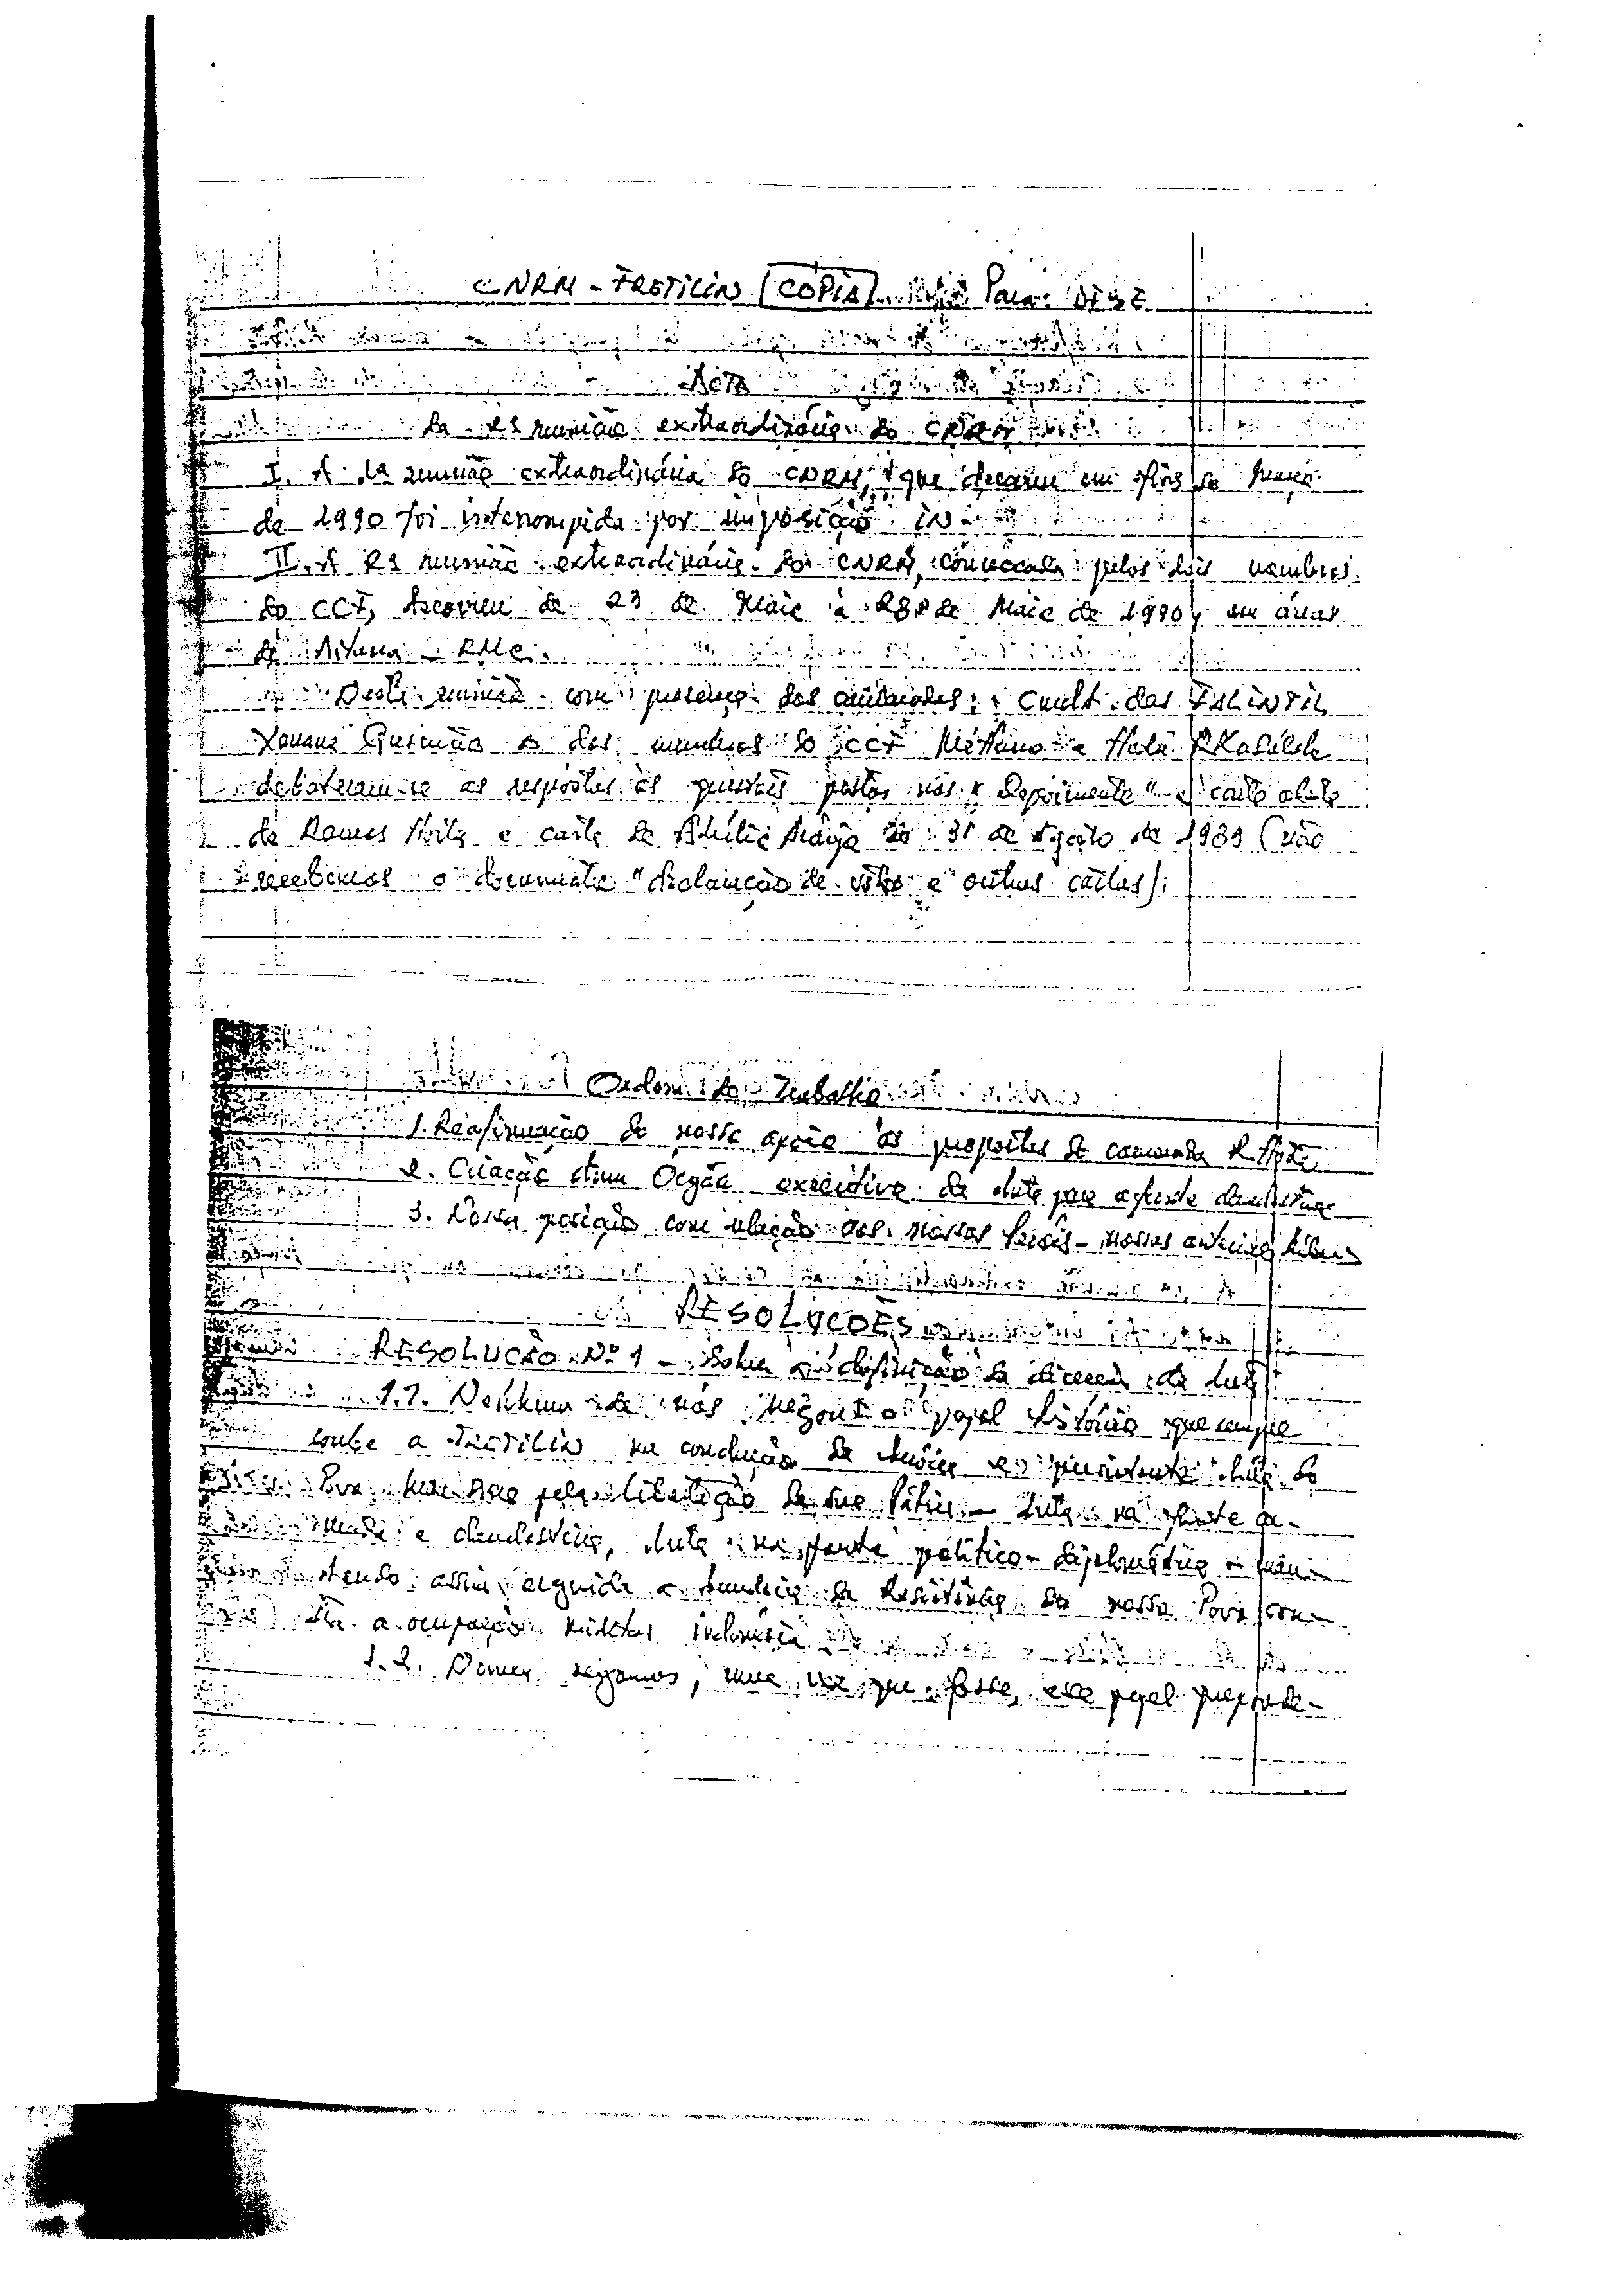 CNRM - FRETILIN COPIA Para: DFSE
Acta
da 2ª reunião extraordinária do CNRM
I. A 1ª reunião extraordinária do CNRM, que decorreu em fins de Março
de 1990 foi interrompida por imposição IN
II. A 2ª reunião extraordinária do CNRM, convocada pelos dois membros
do CCF, decorreu de 23 de Maio à 28 de Maio de 1990, em áreas
de Aitana - RMC.
Nesta reunião com presença dos camaradas: Cmdt. das FALINTIL
Xanana Gusmão e dos membros do CCF Mé Huno e Hodu R. Kadalak
debateram-se as respostas às questões postas nos "Depoimento" e carta aberta
de Ramos Horta e carta de Abílio Araújo de 31 de Agosto de 1989 (não
recebemos o documento "declaração de voto e outras cartas):
Ordem de Trabalho
1. Reafirmação do nosso apoio às propostas do camarada R. Horta
2. Criação dum Orgão executivo da luta para a frente clandestina
3. Nossa posição com relação aos nossos heróis - nossos
RESOLUÇOES
RESOLUÇÃO Nº 1 - Sobre a definição da direcção da luta
1.1. Nenhum de nós negou o papel histórico que sempre
coube a FRETILIN na condução da heróica e persistente luta do
Povo Mau Bere pela libertação da sua Pátria - luta na frente ar-
mada e clandestina, luta na frente político-diplomática - man-
tendo assim erguida a bandeira da Resistência do nosso Povo con-
tra a ocupação militar indonésia
1.2. Nunca negamos, uma vez que fosse, esse papel preponde-